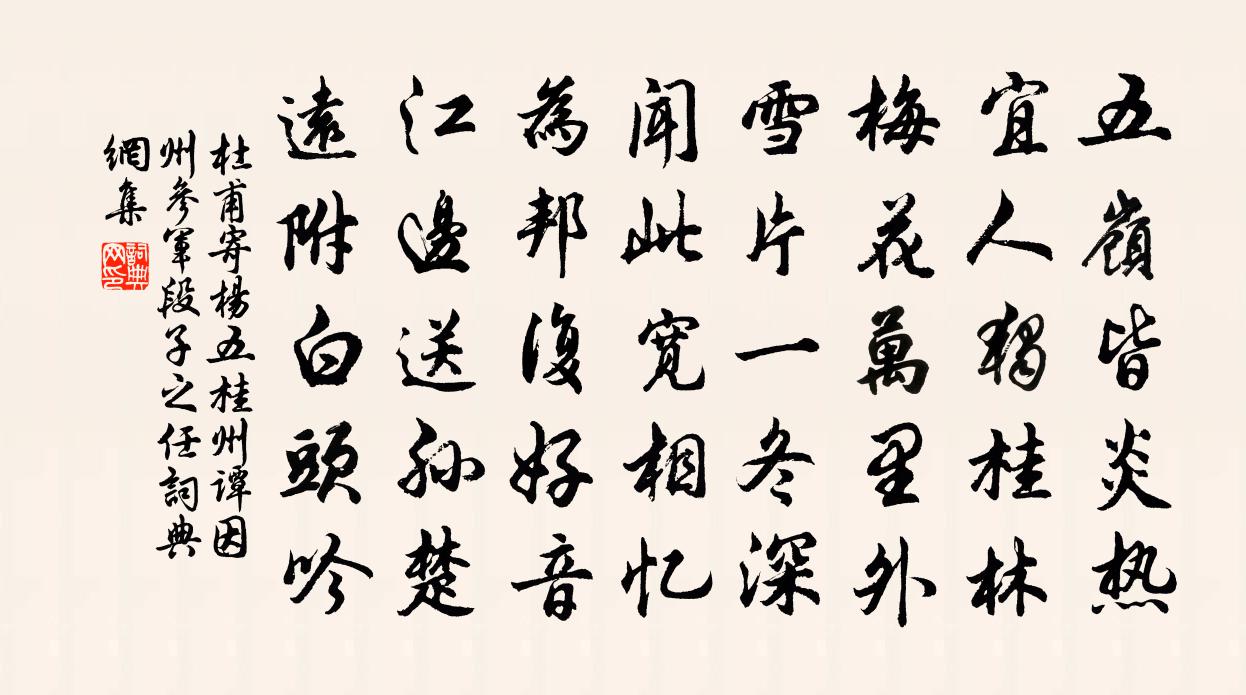 五嶺皆炎热
宜人獨桂林
梅花萬里外
雪片一冬深
聞此寛相忆
為邦復好音
江邊送孫楚
遠附白頭吟
杜甫寄楊五桂州谭因
州參軍段子之任詞典
網集
詞典
网印